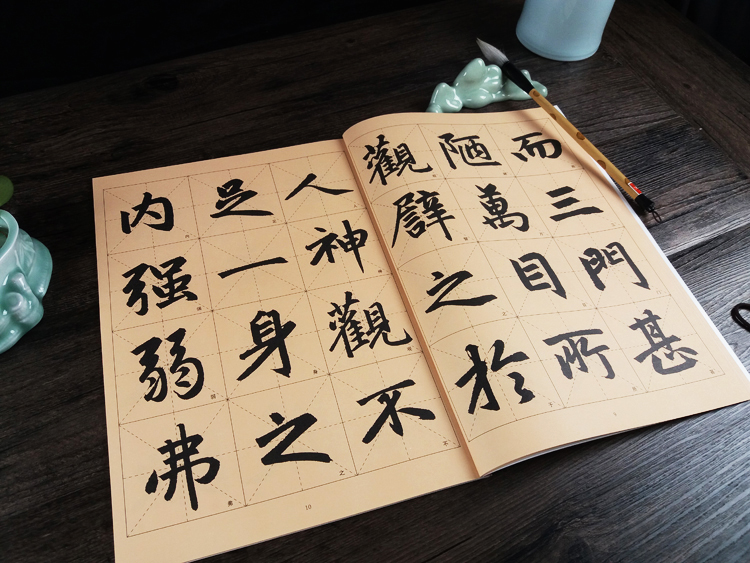 而三門甚
陋萬目所
觀譬之於
人神觀不
足一身之
内强弱弗
10